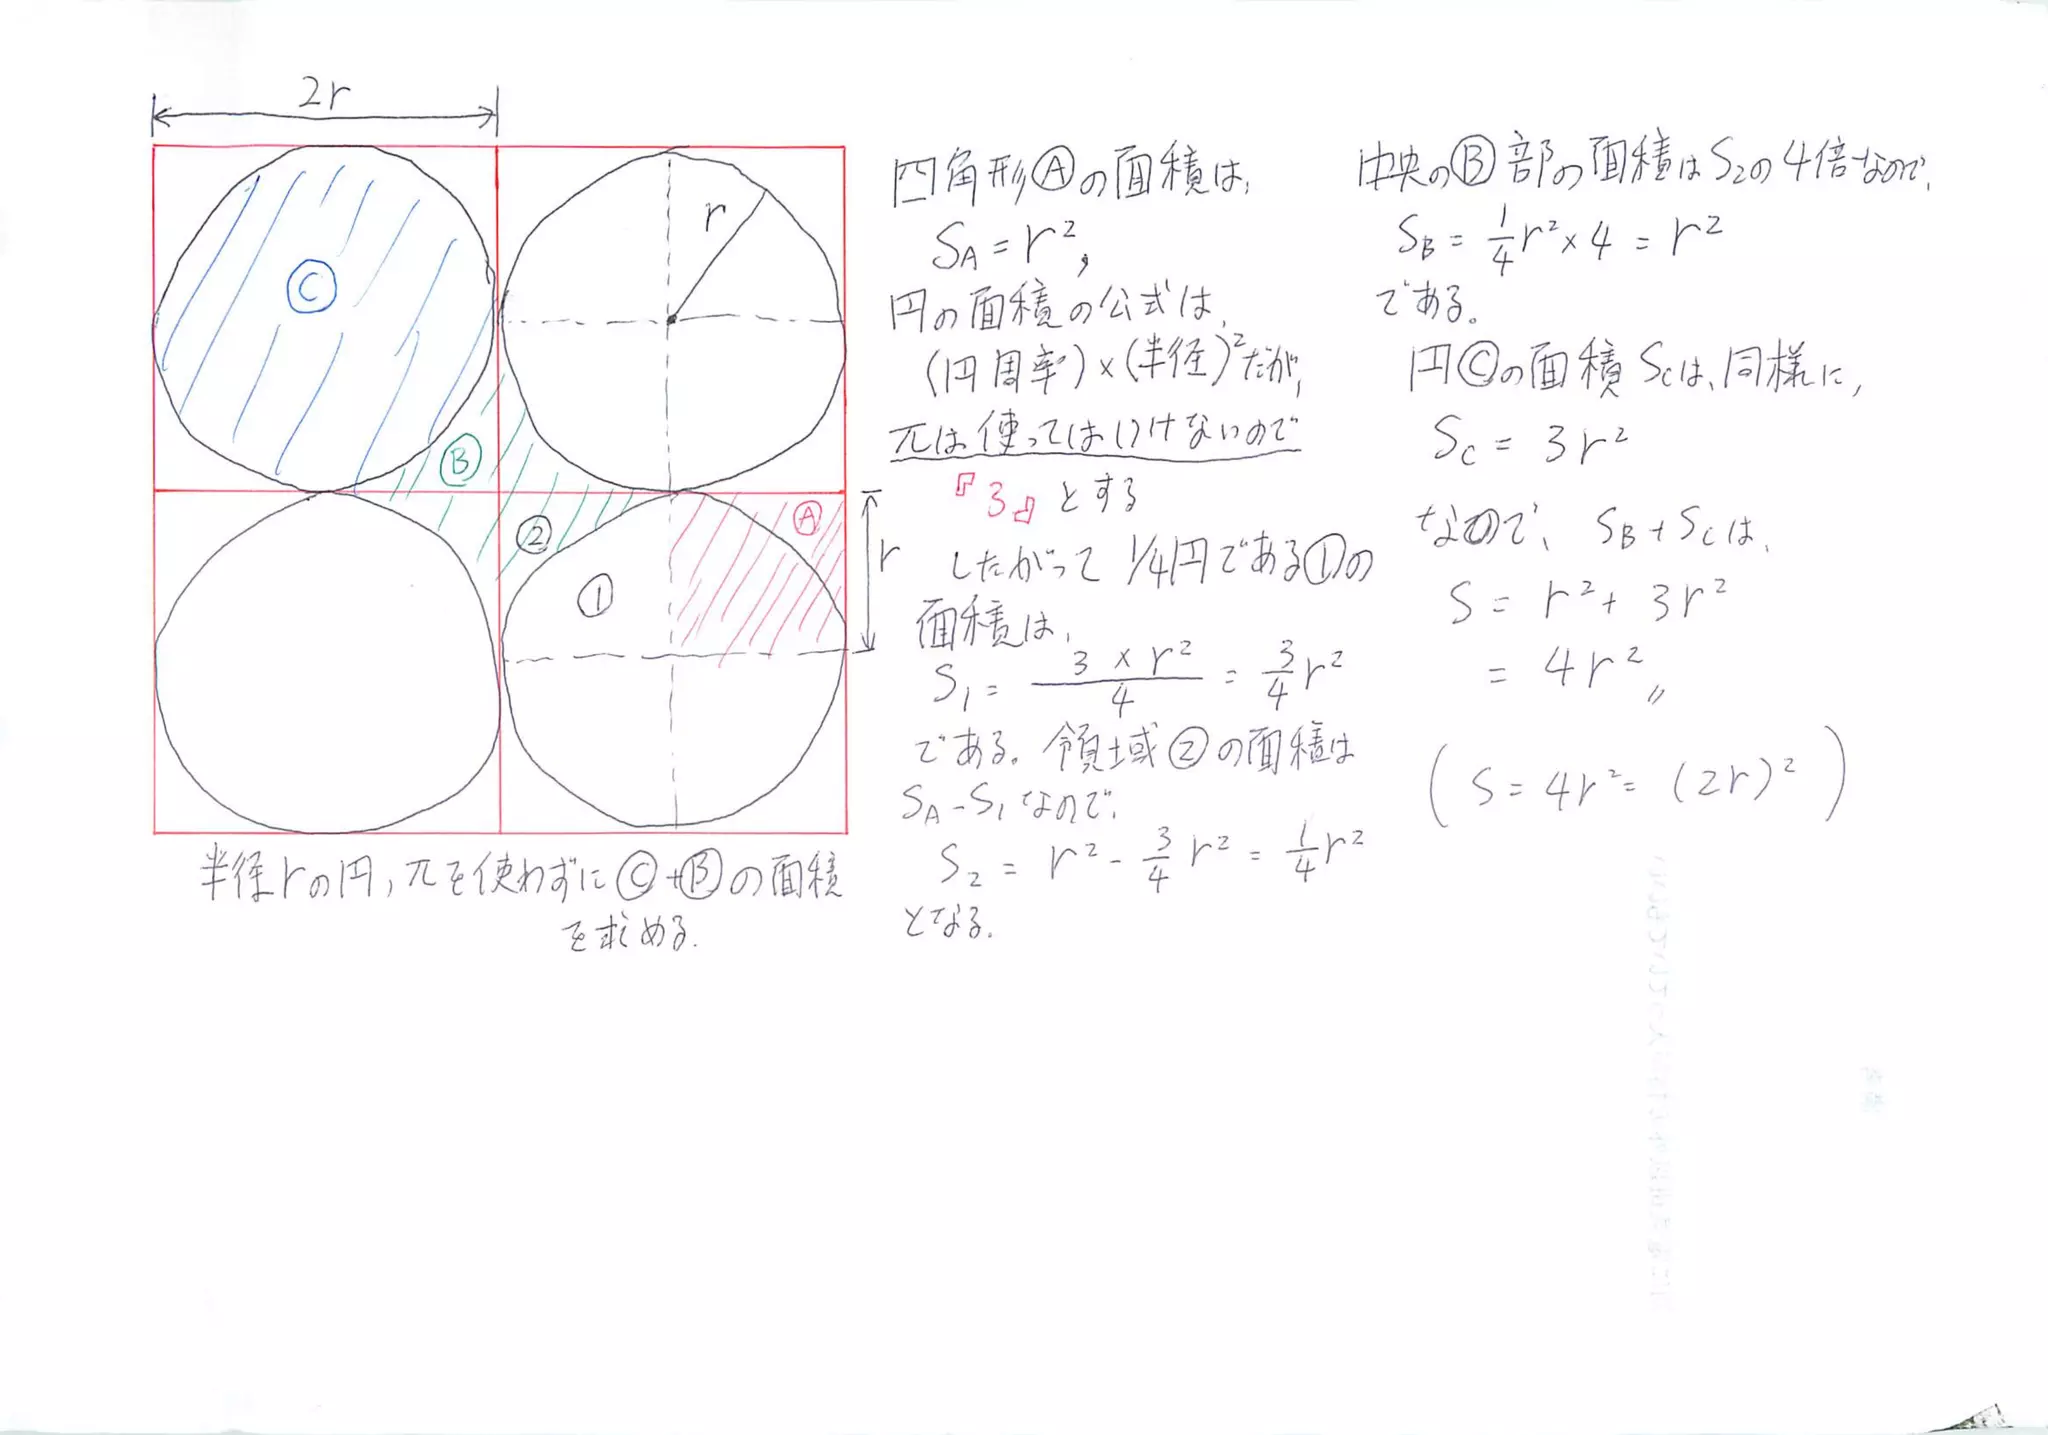 2r
r
Ⓒ
Ⓑ
②
Ⓐ
①
r
半径rの円,πを使わずにⒸ+Ⓑの面積
を求める.
四角形Ⓐの面積は,
S_A = r²,
円の面積の公式は,
(円周率)×(半径)²だが,
πは使ってはいけないので
『3』とする
したがって 1/4円である①の
面積は,
S₁ = 3 × r² / 4 = 3/4 r²
である。領域②の面積は
S_A - S₁なので,
S₂ = r² - 3/4 r² = 1/4 r²
となる.
中央のⒷ部の面積はS₂の4倍なので,
S_B = 1/4 r² × 4 = r²
である。
円Ⓒの面積 S_Cは、同様に,
S_C = 3r²
なので、S_B + S_Cは,
S = r² + 3r²
= 4r²〃
(S = 4r² = (2r)²)